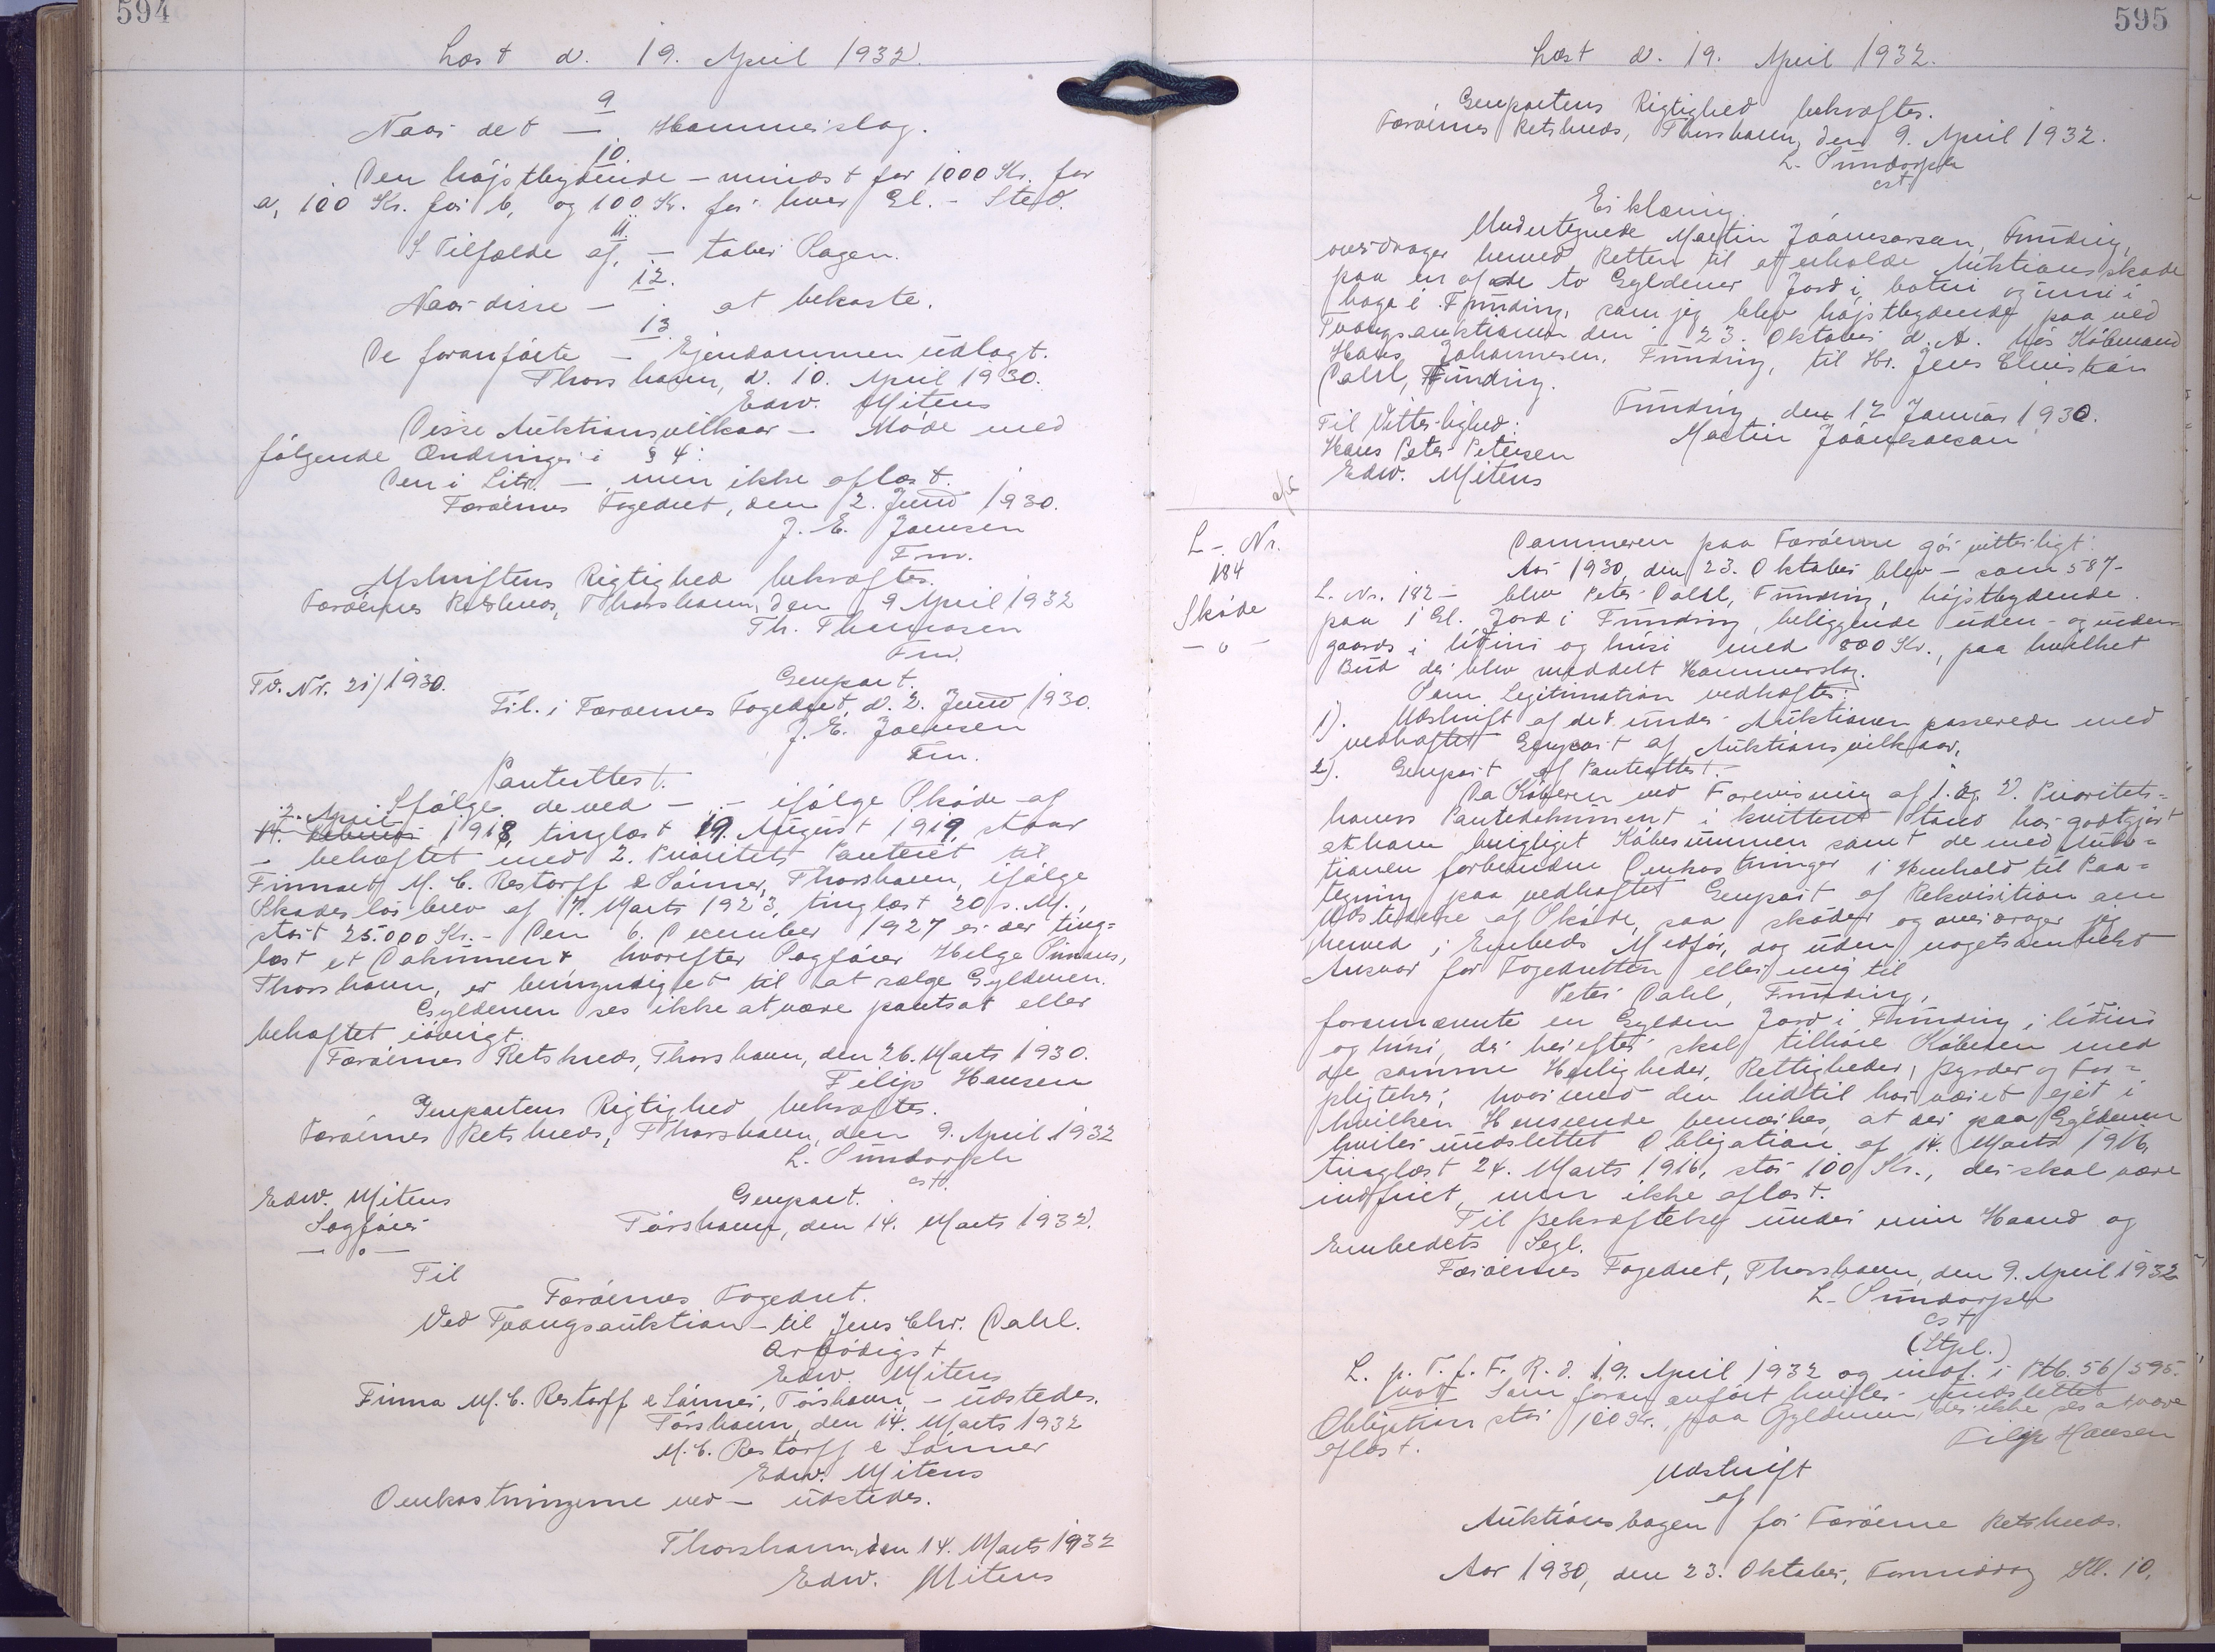 594
Læst d. 19. April 1932.
9
Naar det — Hammerslag.
10
Den højstbydende — mindst for 1000 Kr. for
a, 100 Kr. for b, og 100 Kr. for hver Gl. - Sted.
11.
I Tilfælde af, — taber Sagen.
12.
Naar disse — at bekoste.
13.
De foranførte — Ejendommen udlagt.
Thorshavn, d. 10. April 1930.
Edw. Mitens
Disse Auktionsvilkaar — Møde med
følgende Ændringer i § 4:
Den i Litr. — men ikke aflæst.
Færøernes Fogedret, den 2. Juni 1930.
J. E. Joensen
Fm.
Afskriftens Rigtighed bekræftes.
Færøernes Retskreds, Thorshavn, den 9 April 1932
Th. Thomasen
Fm.
Genpart.
Fr. Nr. 21/1930.
Til. i Færøernes Fogedret, d. 2. Juni 1930.
J. E. Joensen
Fm.
Pantattest.
Ifølge de ved — „ — ifølge Skøde af
2. April
14. Februar 1918, tinglæst 19. August 1919, staar
— behæftet med 2. Prioritets Panteret til
Firmaet M. C. Restorff & Sønner, Thorshavn, ifølge
Skadesløsbrev af 7. Marts 1923, tinglæst 20 s. M.,
stort 25.000 Kr. - Den 6. December 1927 er der ting=
læst et Dokument hvorefter Sagfører Helge Simans,
Thorshavn, er bemyndiget til at sælge Gyldenen.
Gyldenen ses ikke at være pantsat eller
behæftet iøvrigt.
Færøernes Retskreds, Thorshavn, den 26. Marts 1930.
Filip Hansen
Genpartens Rigtighed bekræftes.
Færøernes Retskreds, Thorshavn, den 9. April 1932
L. Sundorph
cst.
Edw. Mitens
Genpart.
Sagfører
Tórshavn, den 14. Marts 1932.
— o —
Til
Færøernes Fogedret.
Ved Tvangsauktion — til Jens Chr. Dahl.
Ærbødigst
Edw. Mitens
Firma M. C. Restorff & Sønner, Tórshavn, — udstedes.
Tórshavn, den 14. Marts 1932
M. C. Restorff & Sønner
Edw. Mitens
Omkostningerne ved — udstedes.
Thorshavn, den 14. Marts 1932
Edw. Mitens
595
Læst d. 19. April 1932.
Genpartens Rigtighed bekræftes.
Færøernes Retskreds, Thorshavn, den 9. April 1932.
L. Sundorph
cst
Erklæring.
Undertegnede Martin Jóannesarson, Funding,
overdrager herved Retten til at erholde Auktionsskøde
paa en af de to Gyldener Jord í botni og inni í
haga i Funding, som jeg blev højstbydende paa ved
Tvangsauktionen den 23. Oktober d. A. hos Købmand
Hans Johannesen, Funding, til Hr. Jens Christian
Dahl, Funding.
Funding, den 12 Januar 1930.
Til Vitterlighed:
Martin Jóannesarson
Hans Peter Petersen
Edw. Mitens
L-. Nr.
184
Skøde
— o —
Dommeren paa Færøerne gør vitterligt:
Aar 1930, den 23. Oktober blev — som 587-
L. Nr. 182 — blev Peter Dahl, Funding, højstbydende
paa 1 Gl. Jord i Funding, beliggende uden- og inden-
gaards í líðini og húsi med 800 Kr., paa hvilket
Bud der blev meddelt Hammerslag.
Som Legitimation vedhæftes:
1). Udskrift af det under Auktionen passerede med
vedhæftet Genpart af Auktionsvilkaar,
2). Genpart af Pantattest. -
Da Køberen ved Forevisning af 1. og 2. Prioritets=
havers Pantedokument i kvitteret Stand har godtgjort
at have berigtiget Købesummen samt de med Auk=
tionen forbundne Omkostninger i Henhold til Paa=
tegning paa vedhæftet Genpart af Rekvisition om
Udstedelse af Skøde, saa skøder og overdrager jeg
herved i Embeds Medfør, dog uden nogetsomhelst
Ansvar for Fogedretten eller mig til
Peter Dahl, Funding,
forannævnte en Gylden Jord i Funding í líðini
og húsi, der herefter skal tilhøre Køberen med
de samme Herligheder, Rettigheder, Byrder og For=
pligtelser, hvormed den hidtil har været ejet i
hvilken Henseende bemærkes, at der paa Gyldenen
hviler uudslettet Obligation af 14. Marts 1916,
tinglæst 24. Marts 1916, stor 100 Kr., der skal være
indfriet, men ikke aflæst.
Til Bekræftelse under min Haand og
Embedets Segl.
Færøernes Fogedret, Thorshavn, den 9. April 1932
L. Sundorph
cst
(Stpl.)
L. p. T. f. F. R. d. 19. April 1932 og indf. i Ptb. 56/595.
Som foran anført hviler uudslettet
Obligation stor 100 Kr., paa Gyldenen, der ikke ses at være
aflæst.
Filip Hansen
Udskrift
af
Auktionsbogen for Færøerne Retskreds.
Aar 1930, den 23. Oktober, Formiddag Kl. 10,